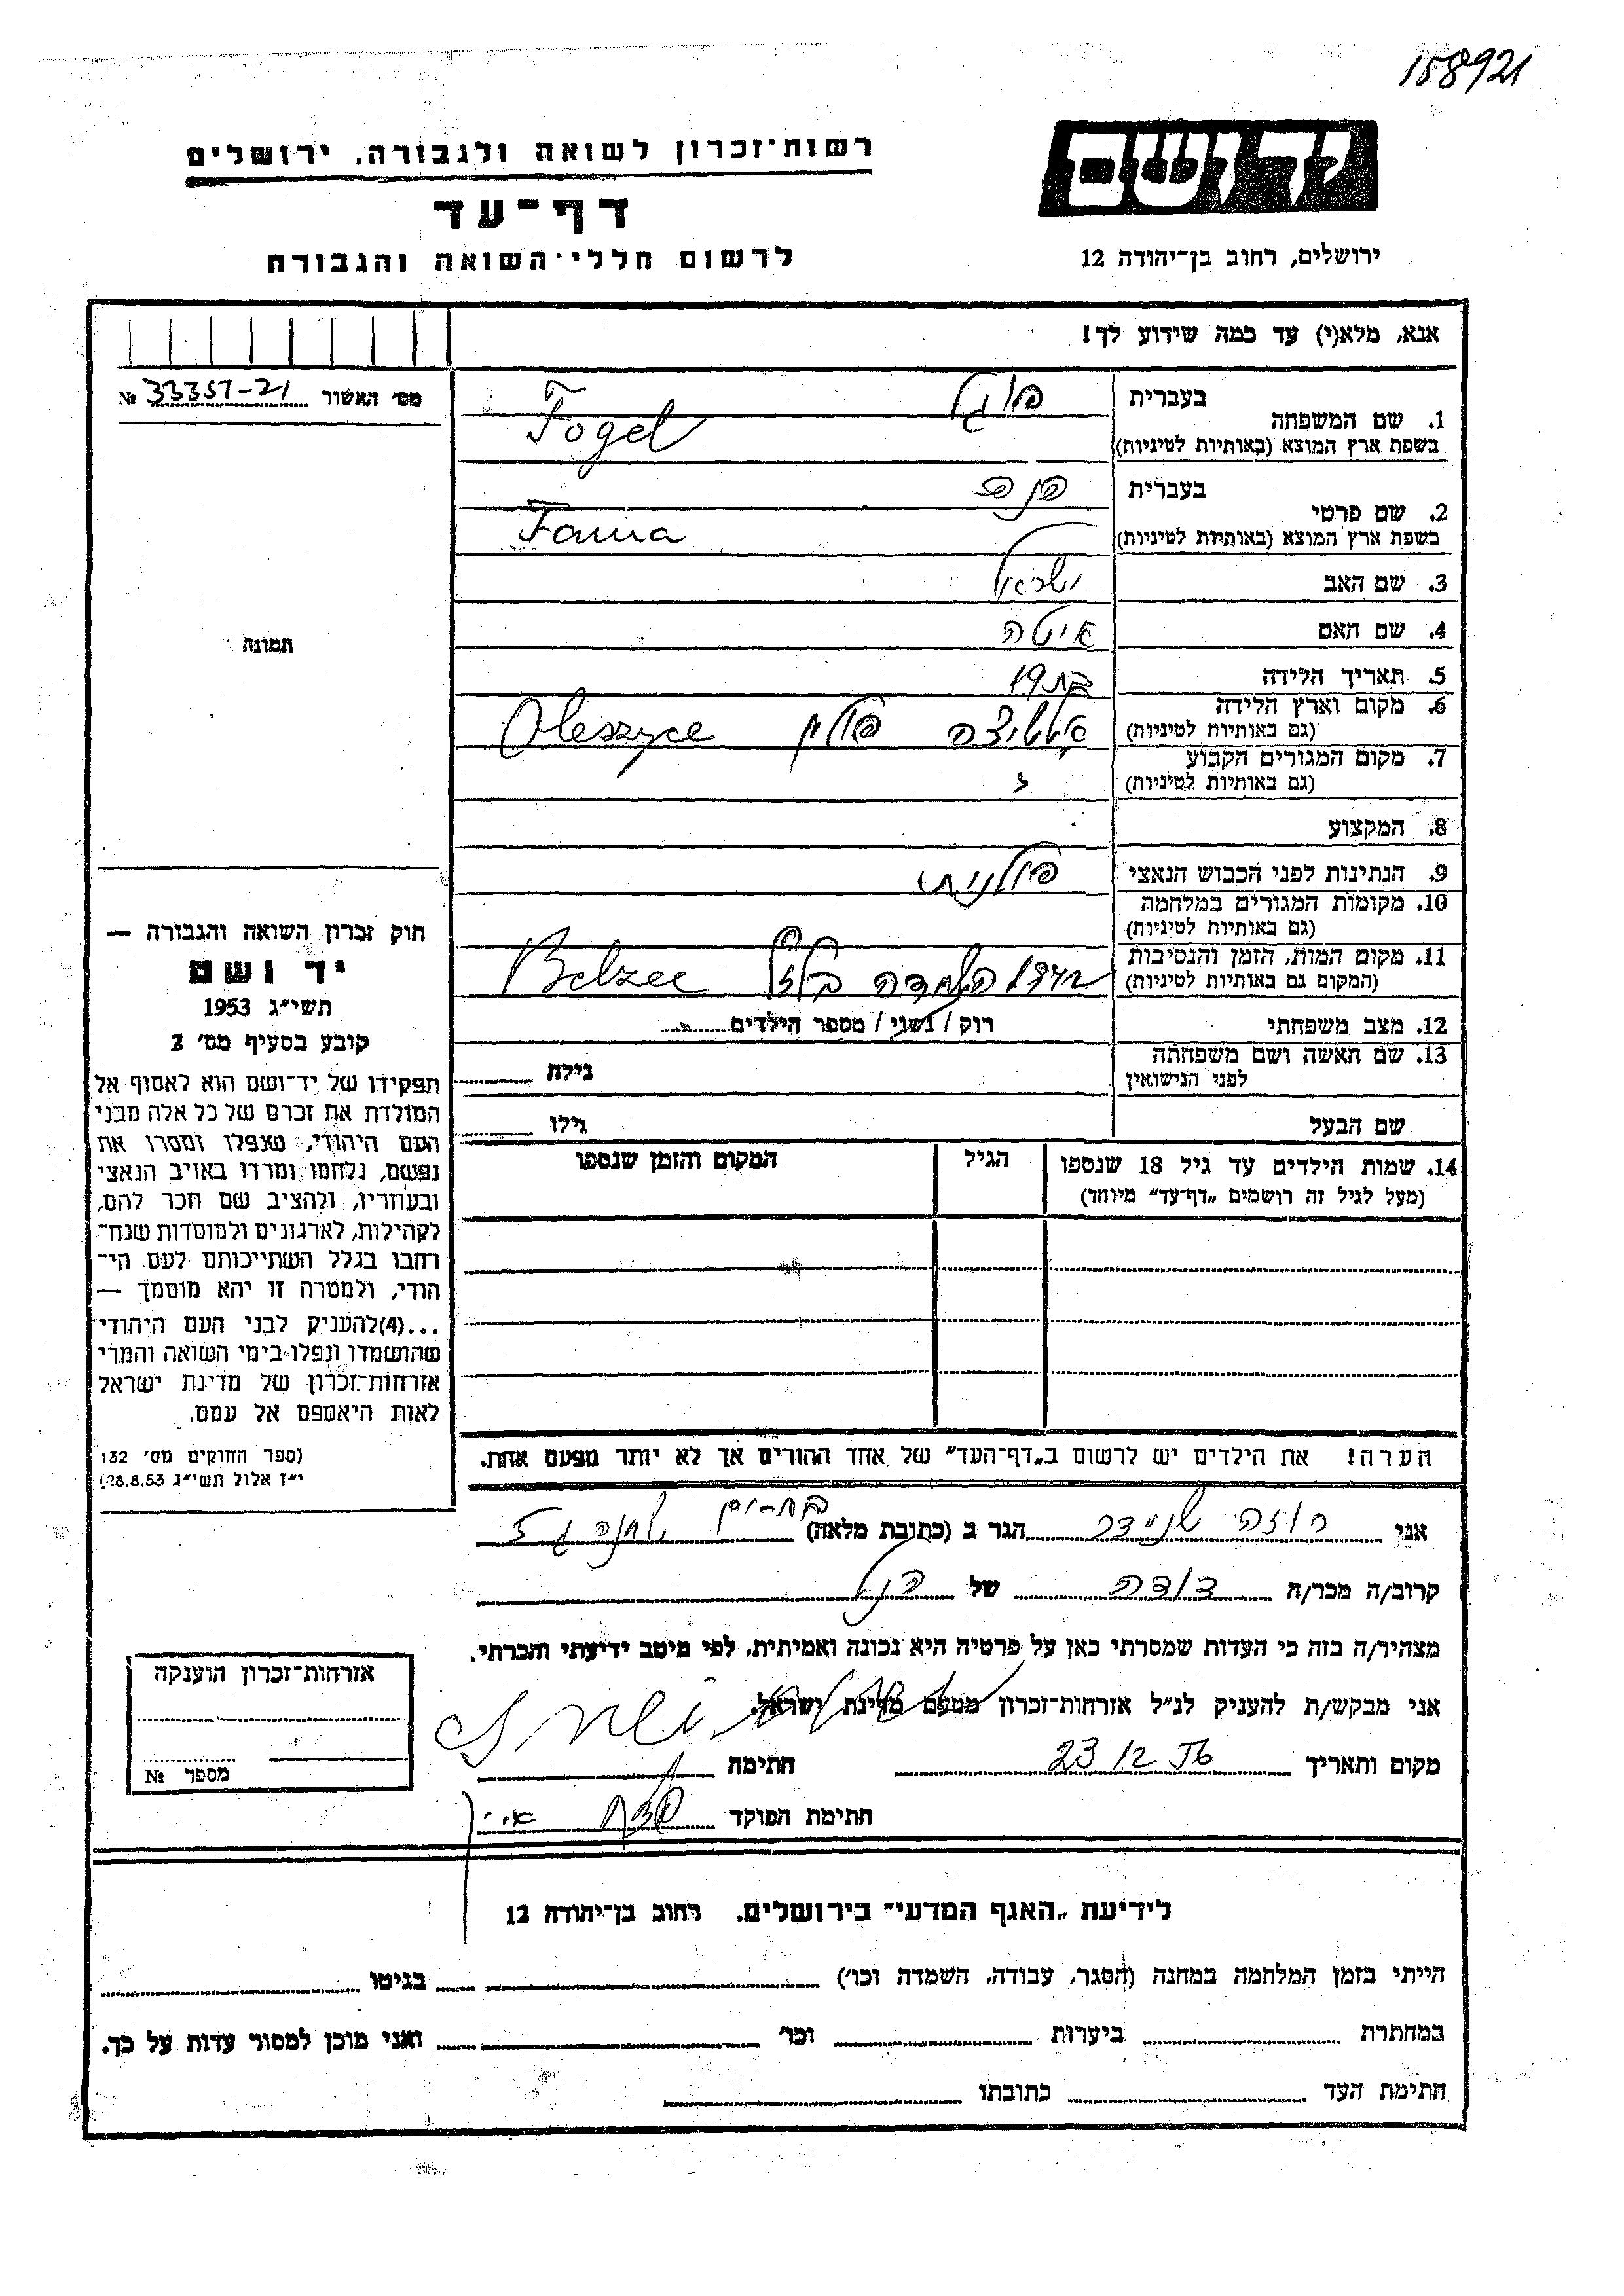 158921
רשות־זכרון לשואה ולגבורה, ירושלים
יד ושם
דף־עד
ירושלים, רחוב בן־יהודה 12
לרשום חללי־השואה והגבורה
אנא, מלא(י) עד כמה שידוע לך!
מס׳ האשור № 33351-21
בעברית פוגל
1. שם המשפחה
בשפת ארץ המוצא (באותיות לטיניות) Fogel
בעברית
2. שם פרטי
בשפת ארץ המוצא (באותיות לטיניות) Fanna
3. שם האב ישראל
4. שם האם איטה
5. תאריך הלידה בת 19
6. מקום וארץ הלידה
(גם באותיות לטיניות) פולין Oleszyce
7. מקום המגורים הקבוע
(גם באותיות לטיניות)
8. המקצוע
9. הנתינות לפני הכבוש הנאצי פולנית
10. מקומות המגורים במלחמה
(גם באותיות לטיניות)
11. מקום המות, הזמן והנסיבות
(המקום גם באותיות לטיניות) השמדה בלזץ Belzec
12. מצב משפחתי רוק / נשוי / מספר הילדים
13. שם האשה ושם משפחתה
לפני הנישואין גילה
שם הבעל גילו
14. שמות הילדים עד גיל 18 שנספו הגיל המקום והזמן שנספו
(מעל לגיל זה רושמים „דף־עד” מיוחד)
הערה! את הילדים יש לרשום ב„דף־העד” של אחד ההורים אך לא יותר מפעם אחת.
תמונה
חוק זכרון השואה והגבורה —
יד ושם
תשי״ג 1953
קובע בסעיף מס׳ 2
תפקידו של יד־ושם הוא לאסוף אל
המולדת את זכרם של כל אלה מבני
העם היהודי, שנפלו ומסרו את
נפשם, נלחמו ומרדו באויב הנאצי
ובעוזריו, ולהציב שם וזכר להם,
לקהילות, לארגונים ולמוסדות שנח־
רבו בגלל השתייכותם לעם הי־
הודי, ולמטרה זו יהא מוסמך —
...(4) להעניק לבני העם היהודי
שהושמדו ונפלו בימי השואה והמרי
אזרחות־זכרון של מדינת ישראל
לאות היאספם אל עמם.
(ספר החוקים מס׳ 132
י״ז אלול תשי״ג 28.8.53)
אני רוזה שניידר הגר ב (כתובת מלאה)
קרוב/ה מכר/ה דודה של הנ״ל
מצהיר/ה בזה כי העדות שמסרתי כאן על פרטיה היא נכונה ואמיתית, לפי מיטב ידיעתי והכרתי.
אני מבקש/ת להעניק לנ״ל אזרחות־זכרון מטעם מדינת ישראל.
מקום ותאריך 23 12 חתימה
חתימת הפוקד
אזרחות־זכרון הוענקה
מספר №
לידיעת „האגף המדעי” בירושלים. רחוב בן־יהודה 12
הייתי בזמן המלחמה במחנה (הסגר, עבודה, השמדה וכו׳) בגיטו
במחתרת ביערות וכו׳ ואני מוכן למסור עדות על כך.
חתימת העד כתובתו